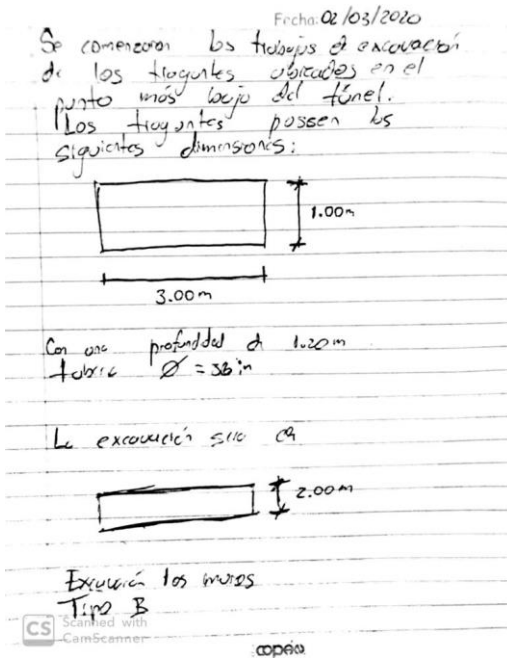 Fecha: 02/03/2020
Se comenzaron los trabajos de excavación
de los tragantes ubicados en el
punto más bajo del túnel.
Los tragantes posseen los
siguientes dimensiones:
1.00m
3.00m
Con una profundidad de 1.20m
tubería Ø = 38in
La excavación será de
2.00m
Excavación los muros
Tipo B
CS Scanned with
CamScanner
copán